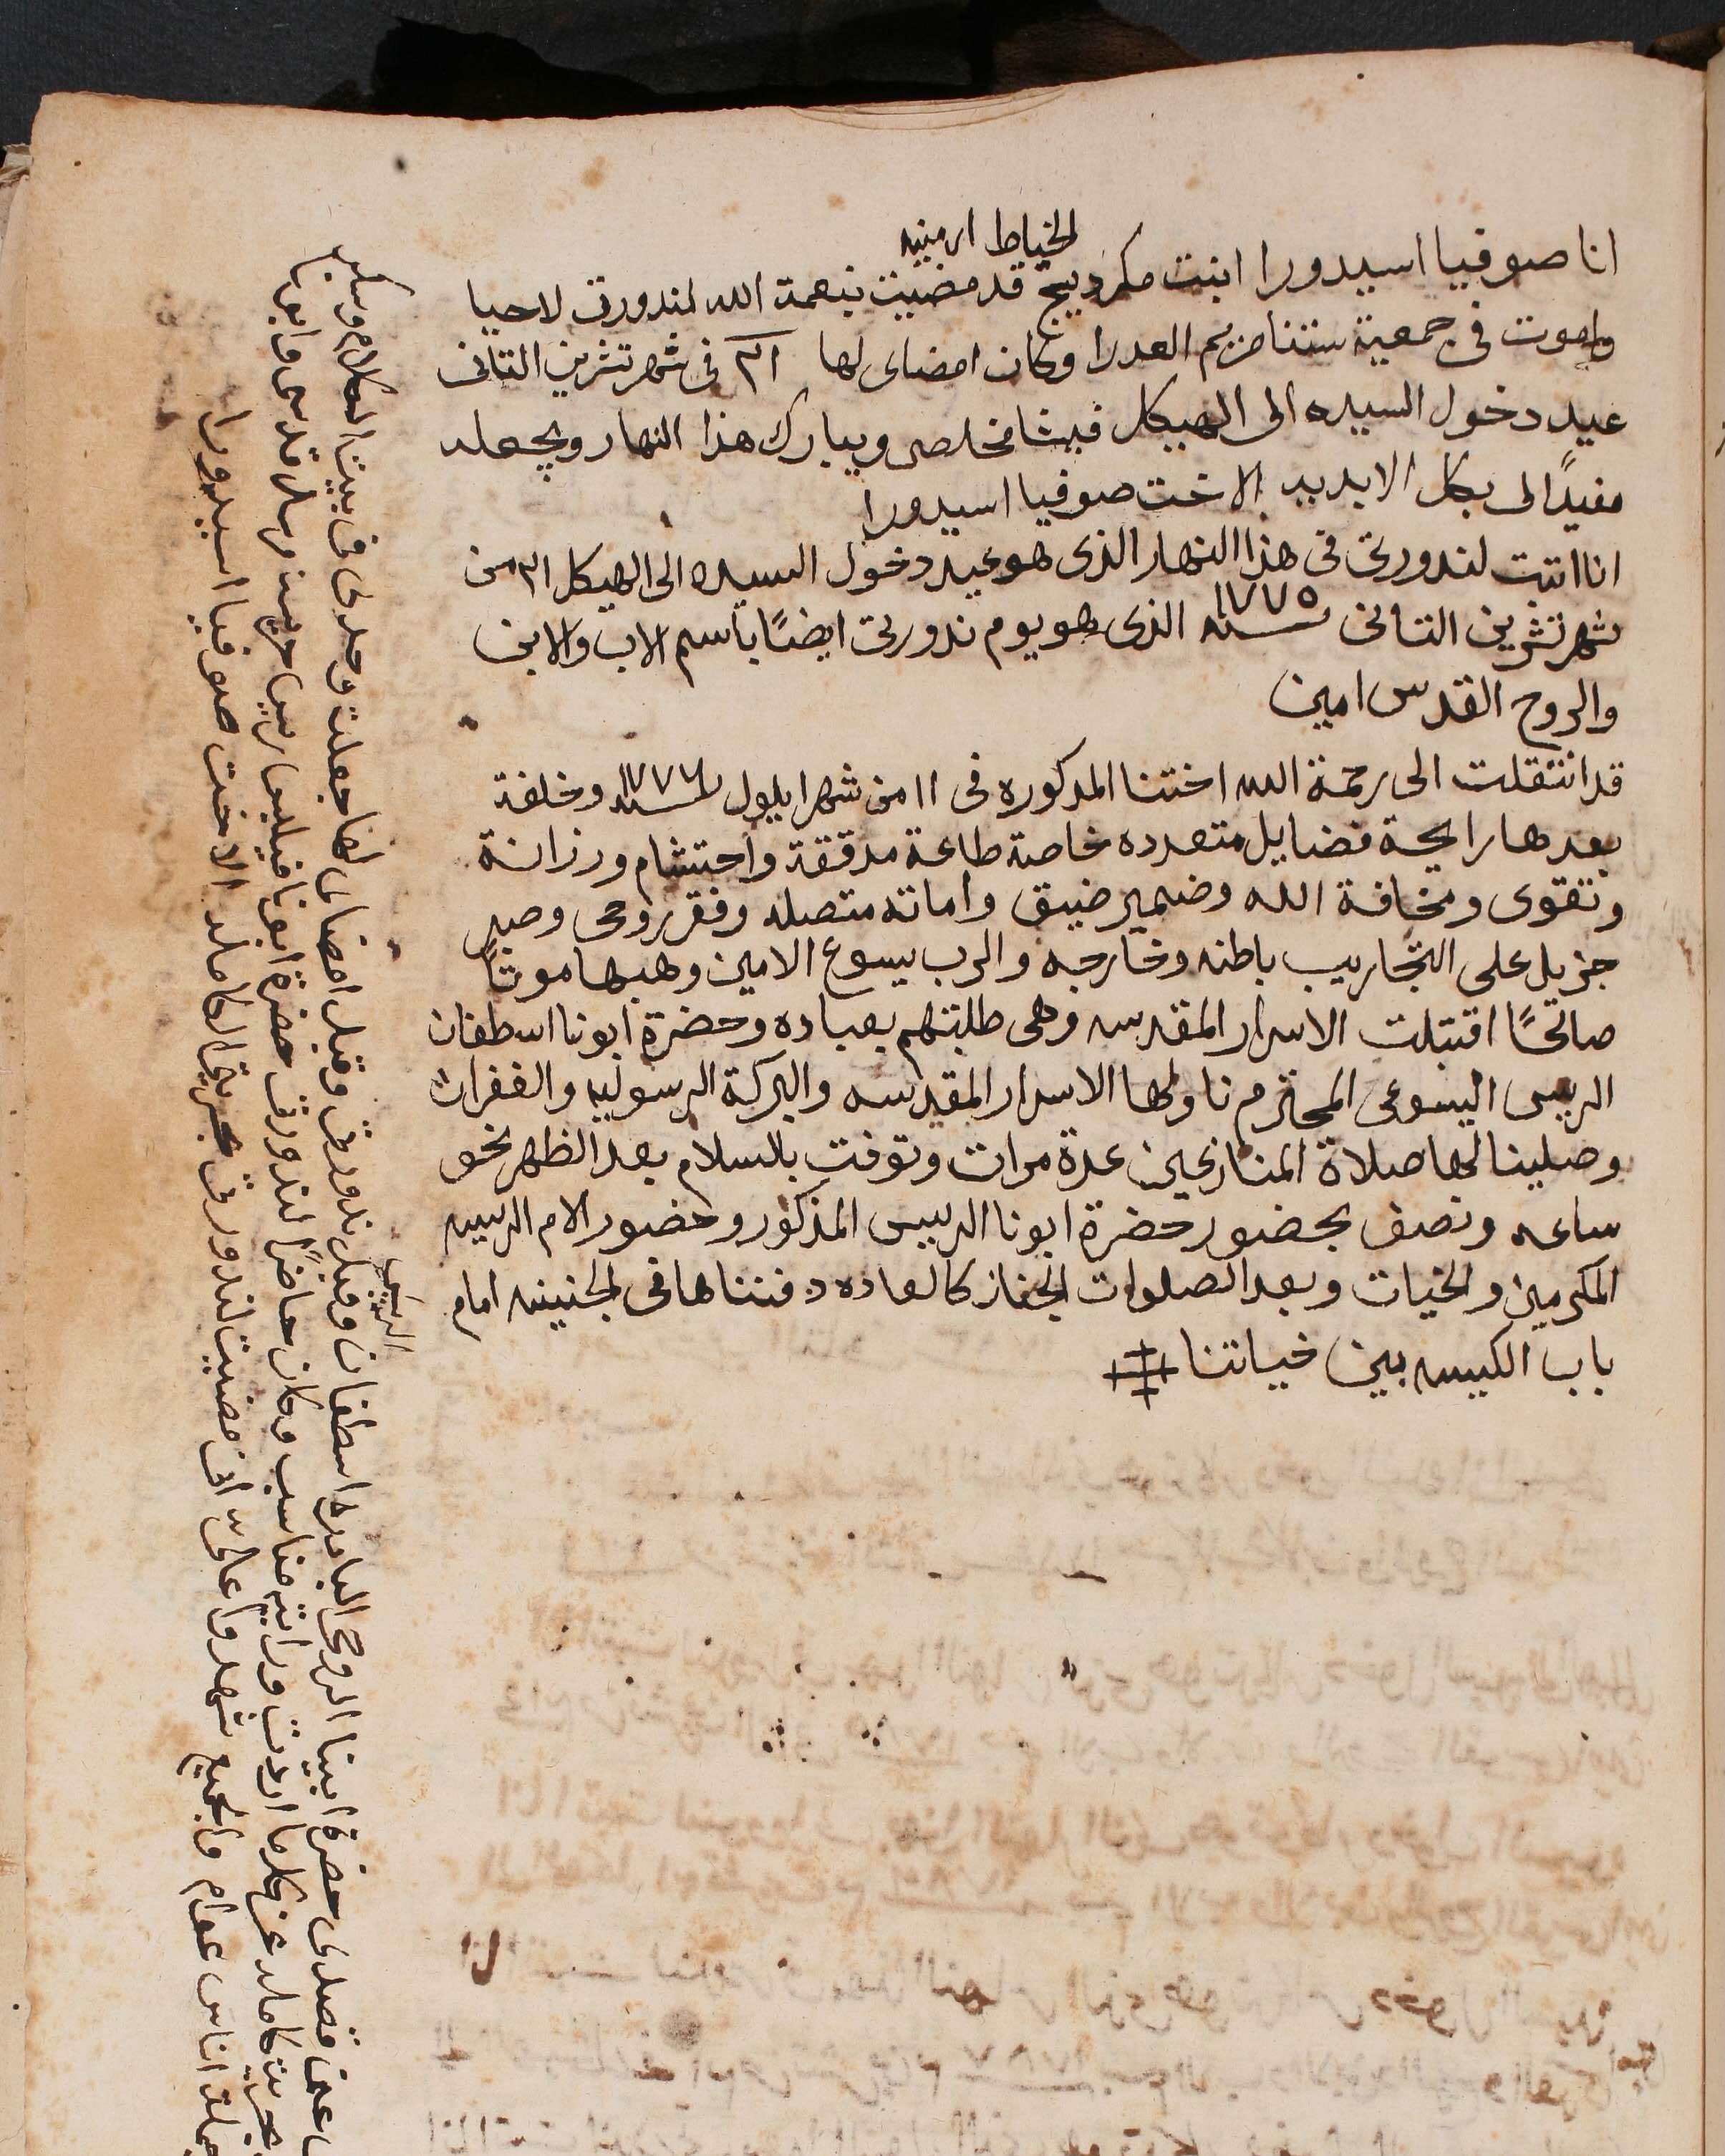 الخياط ارمنيه
انا صوفيا اسيدورا ابنت مكرديج قد مضيت بنعمة الله لندورتى لاحيا
واموت فى جمعية ستنا مريم العدرا وكان امضاى لها ٢١ فى شهر تشرين التانى
عيد دخول السيده الى الهيكل فيشا مخلصى ويبارك هذا النهار ويجعله
مفيدًا لى بكل الابديه الاخت صوفيا اسيدورا
انا اتبت لندورتى فى هذا النهار الذى هو عيد دخول السيده الى الهيكل ٢١ من
شهر تشرين التانى سنه ١٧٧٥ الذى هو يوم ندورتى ايضًا بأسم الاب والابن
والروح القدس امين
قد انتقلت الى رحمة الله اختنا المدكوره فى ١١ من شهر ايلول سنه وخلفة
بعدها رايحة فضايل متعدده خاصة طاعة مدققة واحتشام ورزانة
وتقوى ومخافة الله وضمير ضيق واماته متصله وفقر روحى وصبر
جزيل على التجاريب باطنه وخارجه والرب يسوع الامين وهبها موتًا
صالحًا اقتبلت الاسرار المقدسه وهى طلبتهم بعباده وحضرة ابونا اسطفان
الريس اليسوعى المحترم ناولها الاسرار المقدسه والبركة الرسوليه والغفرات
وصلينا لها صلاة المنازعين عدة مرات وتوفت بالسلام بعد الظهر نحو
ساعه ونصف بحضور حضرة ابونا الرييس المذكور وحضور الام الرييسه
المكرمين والخيات وبعد الصلوات الجناز كالعاده دفنناها فى الجنينه امام
باب الكنيسه بين خياتنا
الرييس
قصدى حضرة ابينا الروحى البادرى اسطفان وقبل ندورتى وقبل امضاى لها جعلت وحدى فى بيتنا
كامله عن كلما اردت ورايته مناسب وكان حاضرًا لندورتى حضرة ابونا
اناس عوام والجميع شهدوا على انى مضيت لندورتى بحريتى الكامله الاخت صوفيا اسيدورا